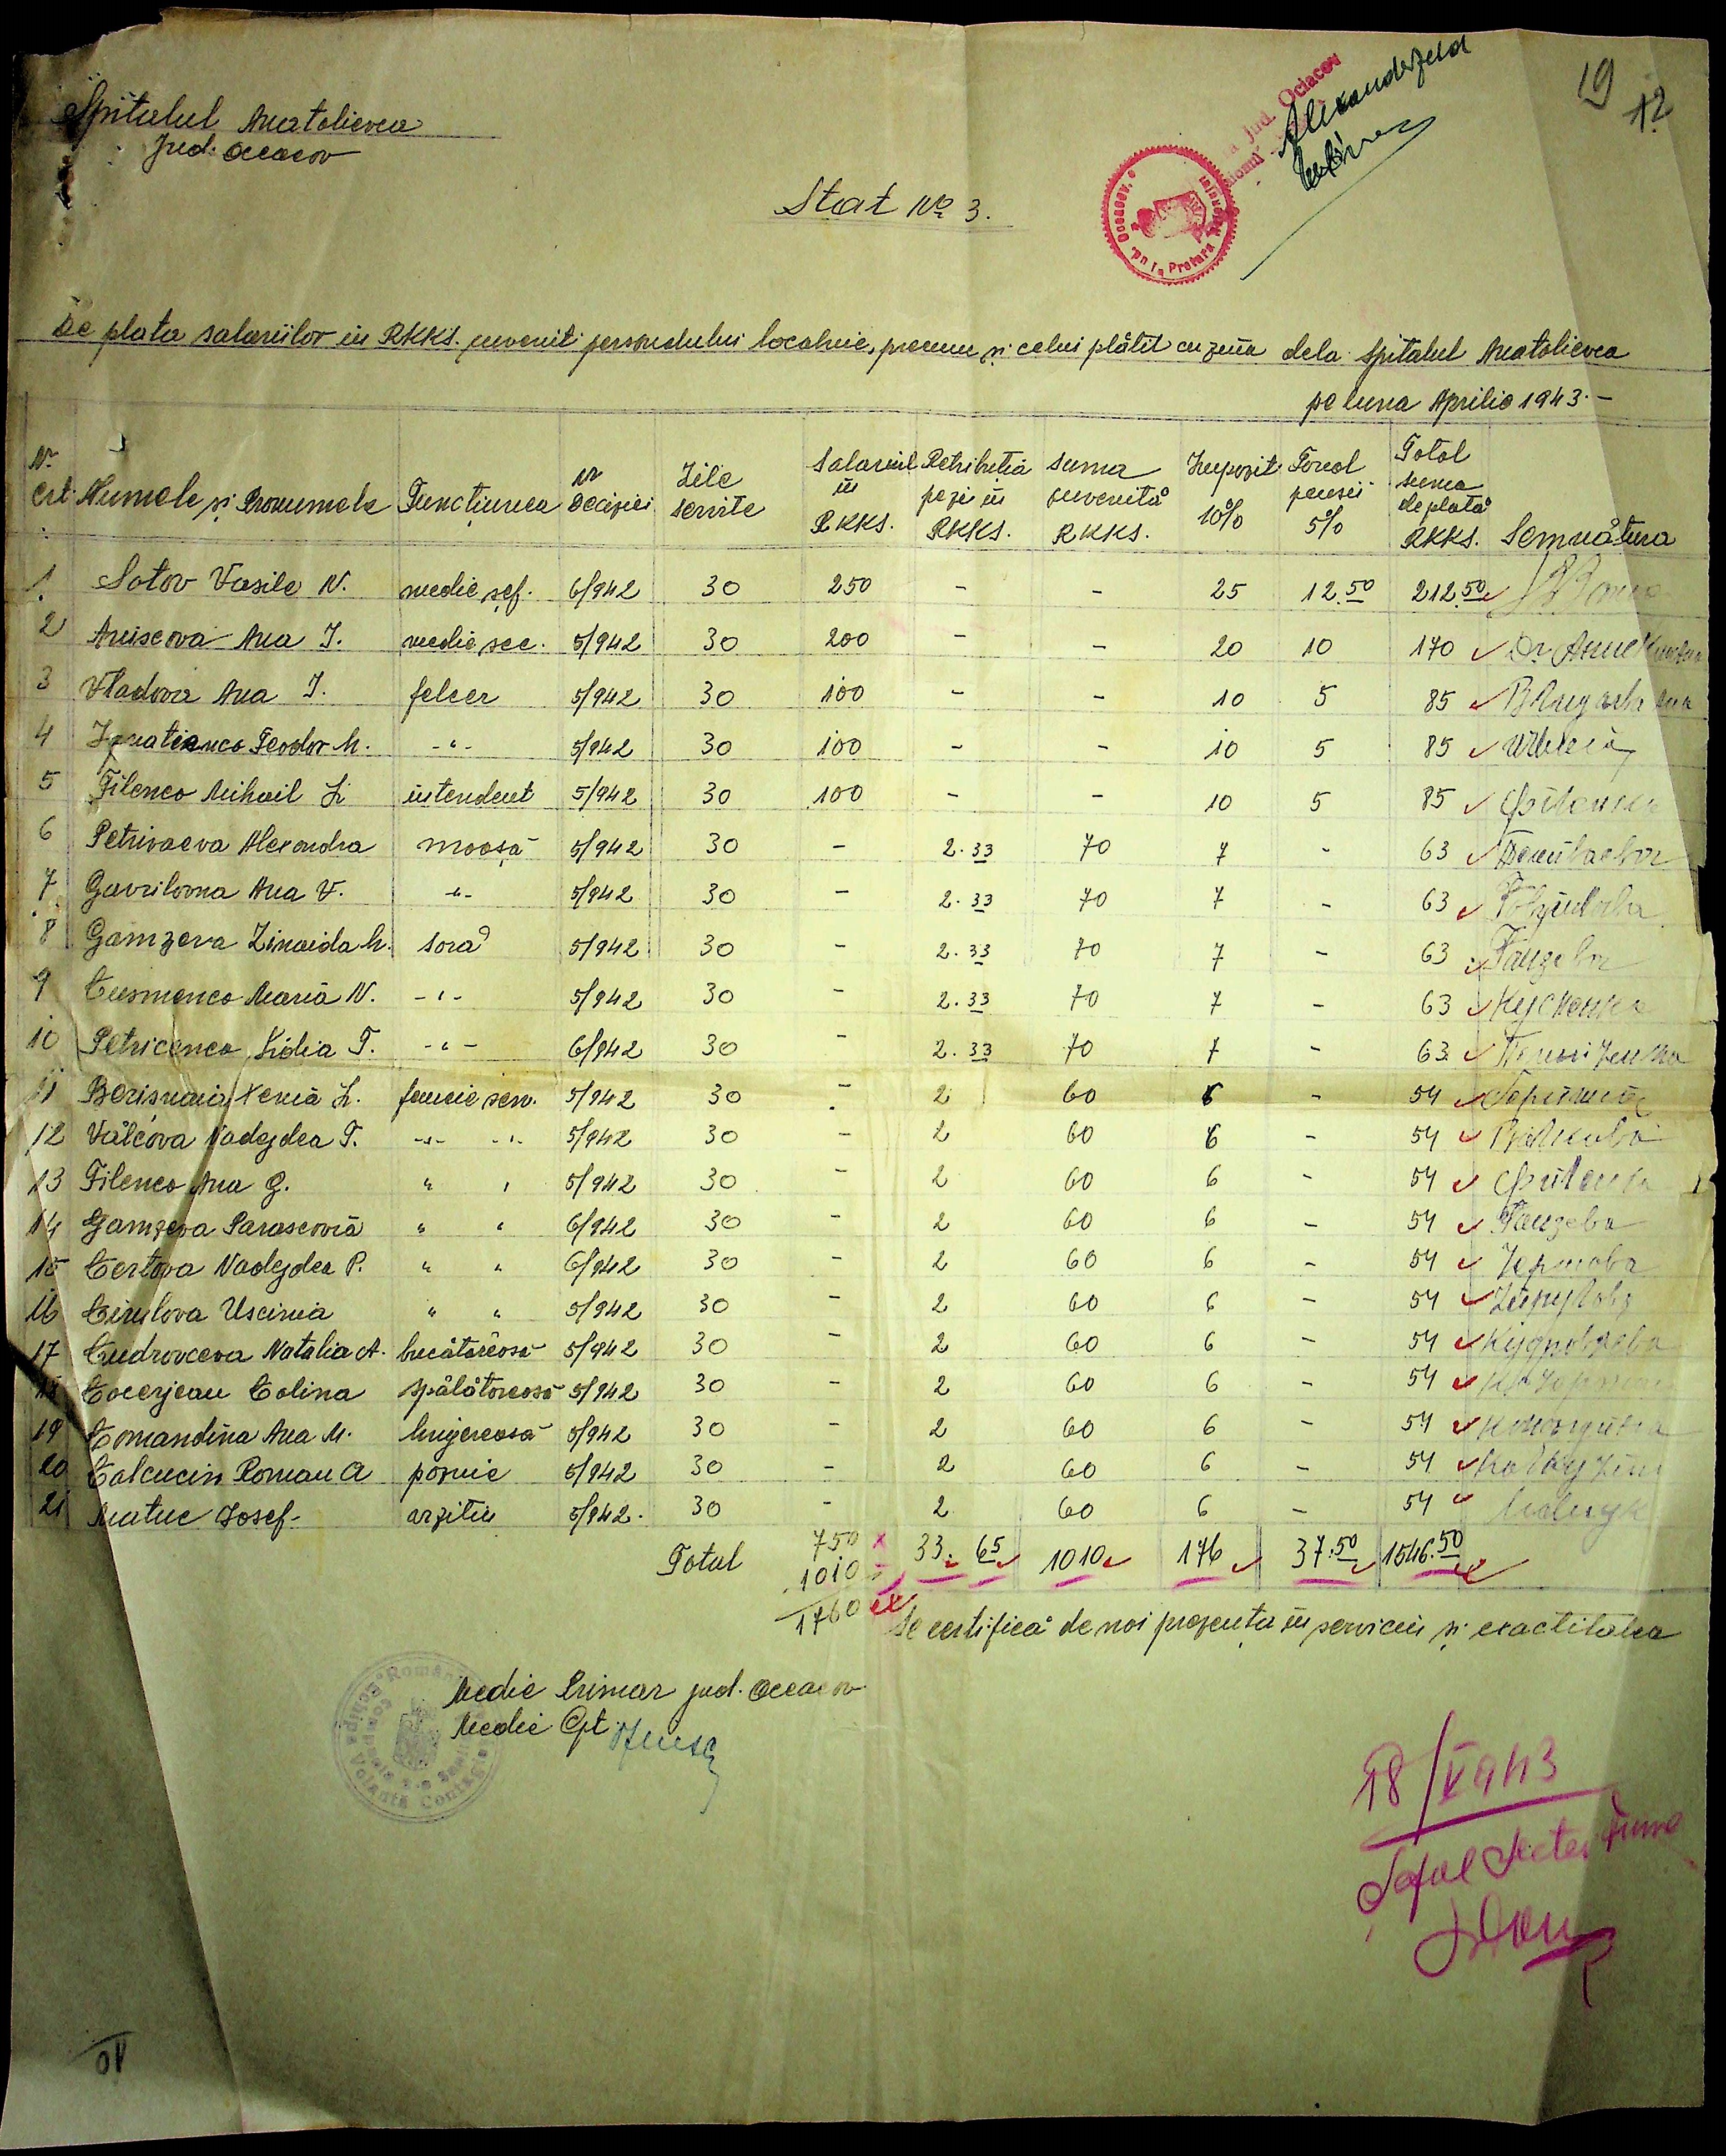 19
12
Spitalul Anatolievca
Jud. Oceacov
Jud. Ociacov
Alexanderfeld
Stat No 3.
De plata salariilor in RKKS. cuvenit personalului localnic, precum și celui plătit cu ziua dela Spitalul Anatolievca
pe luna Aprilie 1943.-
Nr. crt. Numele și Pronumele Funcțiunea Nr Deciziei Zile servite Salariul in RKKS. Retribuția pe zi in RKKS. Suma cuvenită RKKS. Impozit 10% Fond pensii 5% Total suma de plată RKKS. Semnătura
1 Sotov Vasile N. medic șef. 6/942 30 250 - - 25 12.50 212.50
2 Aniscova Ana I. medic sec. 5/942 30 200 - - 20 10 170 Dr.
3 Vladova Ana I. felcer 5/942 30 100 - - 10 5 85
4 Ignatienco Teodor M. -"- 5/942 30 100 - - 10 5 85
5 Filenco Mihail L. intendent 5/942 30 100 - - 10 5 85 Філенко
6 Petrivaeva Alexandra moașă 5/942 30 - 2.33 70 7 - 63
7 Gavrilovna Ana V. -"- 5/942 30 - 2.33 70 7 - 63
8 Gamzeva Zinaida M. soră 5/942 30 - 2.33 70 7 - 63 Гамзева
9 Cusmenco Maria N. -"- 5/942 30 - 2.33 70 7 - 63 Кусменко
10 Petricenco Lidia T. -"- 6/942 30 - 2.33 70 7 - 63
11 Berișnaia Xenia L. femeie serv. 5/942 30 - 2 60 6 - 54
12 Vâlcova Nadejdea T. -"- -"- 5/942 30 - 2 60 6 - 54
13 Filenco Ana G. " " 5/942 30 - 2 60 6 - 54
14 Gamzeva Parascovia " " 6/942 30 - 2 60 6 - 54 Гамзева
15 Certova Nadejdea P. " " 6/942 30 - 2 60 6 - 54 Чертова
16 Cirulova Uscinia " " 5/942 30 - 2 60 6 - 54
17 Cudrovceva Natalia A. bucătăreasă 5/942 30 - 2 60 6 - 54 Кудровцева
18 Cocerjean Colina spălătoreasă 5/942 30 - 2 60 6 - 54
19 Comandina Ana M. lingereasă 5/942 30 - 2 60 6 - 54
20 Calcucin Roman A paznic 5/942 30 - 2 60 6 - 54
21 Matuc Iosef- arzitiu 5/942. 30 - 2 60 6 - 54
Total 750 33.65 1010 176 37.50 1546.50
1010
1760
Se certifică de noi prezența in serviciu și exactitatea
Medic Primar jud. Oceacov
Medic Cpt.
18/V 943
Șeful